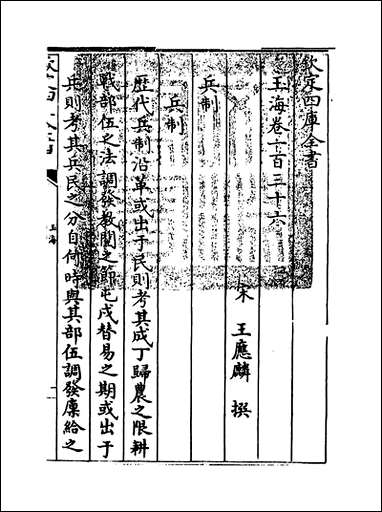 欽定四庫全書
玉海卷一百三十六
宋 王應麟 撰
兵制
兵制
歷代兵制沿革或出于民則考其成丁歸農之限耕
戰部伍之法調發教閱之節屯戍替易之期或出于
兵則考其兵民之分自何時與其部伍調發廩給之